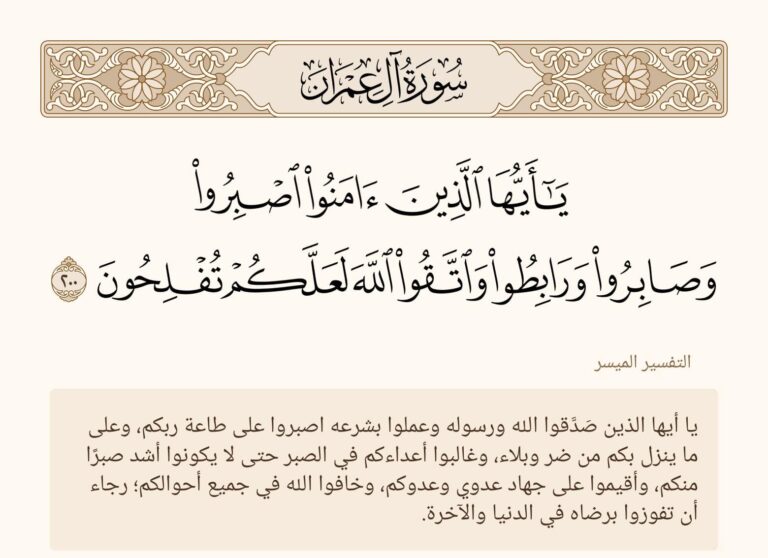 سُورَةُ آلِ عِمْرَانَ
يَـٰٓأَيُّهَا ٱلَّذِينَ ءَامَنُوا۟ ٱصۡبِرُوا۟
وَصَابِرُوا۟ وَرَابِطُوا۟ وَٱتَّقُوا۟ ٱللَّهَ لَعَلَّكُمۡ تُفۡلِحُونَ ٢٠٠
التفسير الميسر
يا أيها الذين صَدَّقوا الله ورسوله وعملوا بشرعه اصبروا على طاعة ربكم، وعلى
ما ينزل بكم من ضر وبلاء، وغالبوا أعداءكم في الصبر حتى لا يكونوا أشد صبرًا
منكم، وأقيموا على جهاد عدوي وعدوكم، وخافوا الله في جميع أحوالكم؛ رجاء
أن تفوزوا برضاه في الدنيا والآخرة.